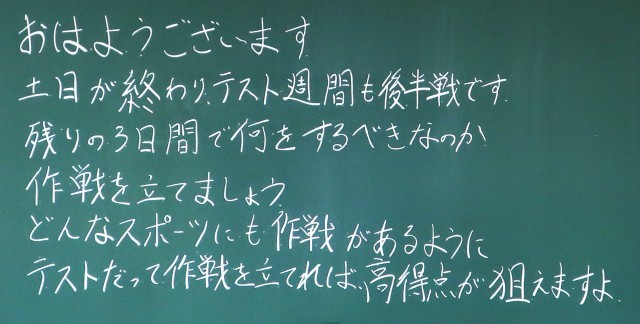 おはようございます
土日が終わり、テスト週間も後半戦です。
残りの3日間で何をするべきなのか
作戦を立てましょう。
どんなスポーツにも作戦があるように
テストだって作戦を立てれば、高得点が狙えますよ。